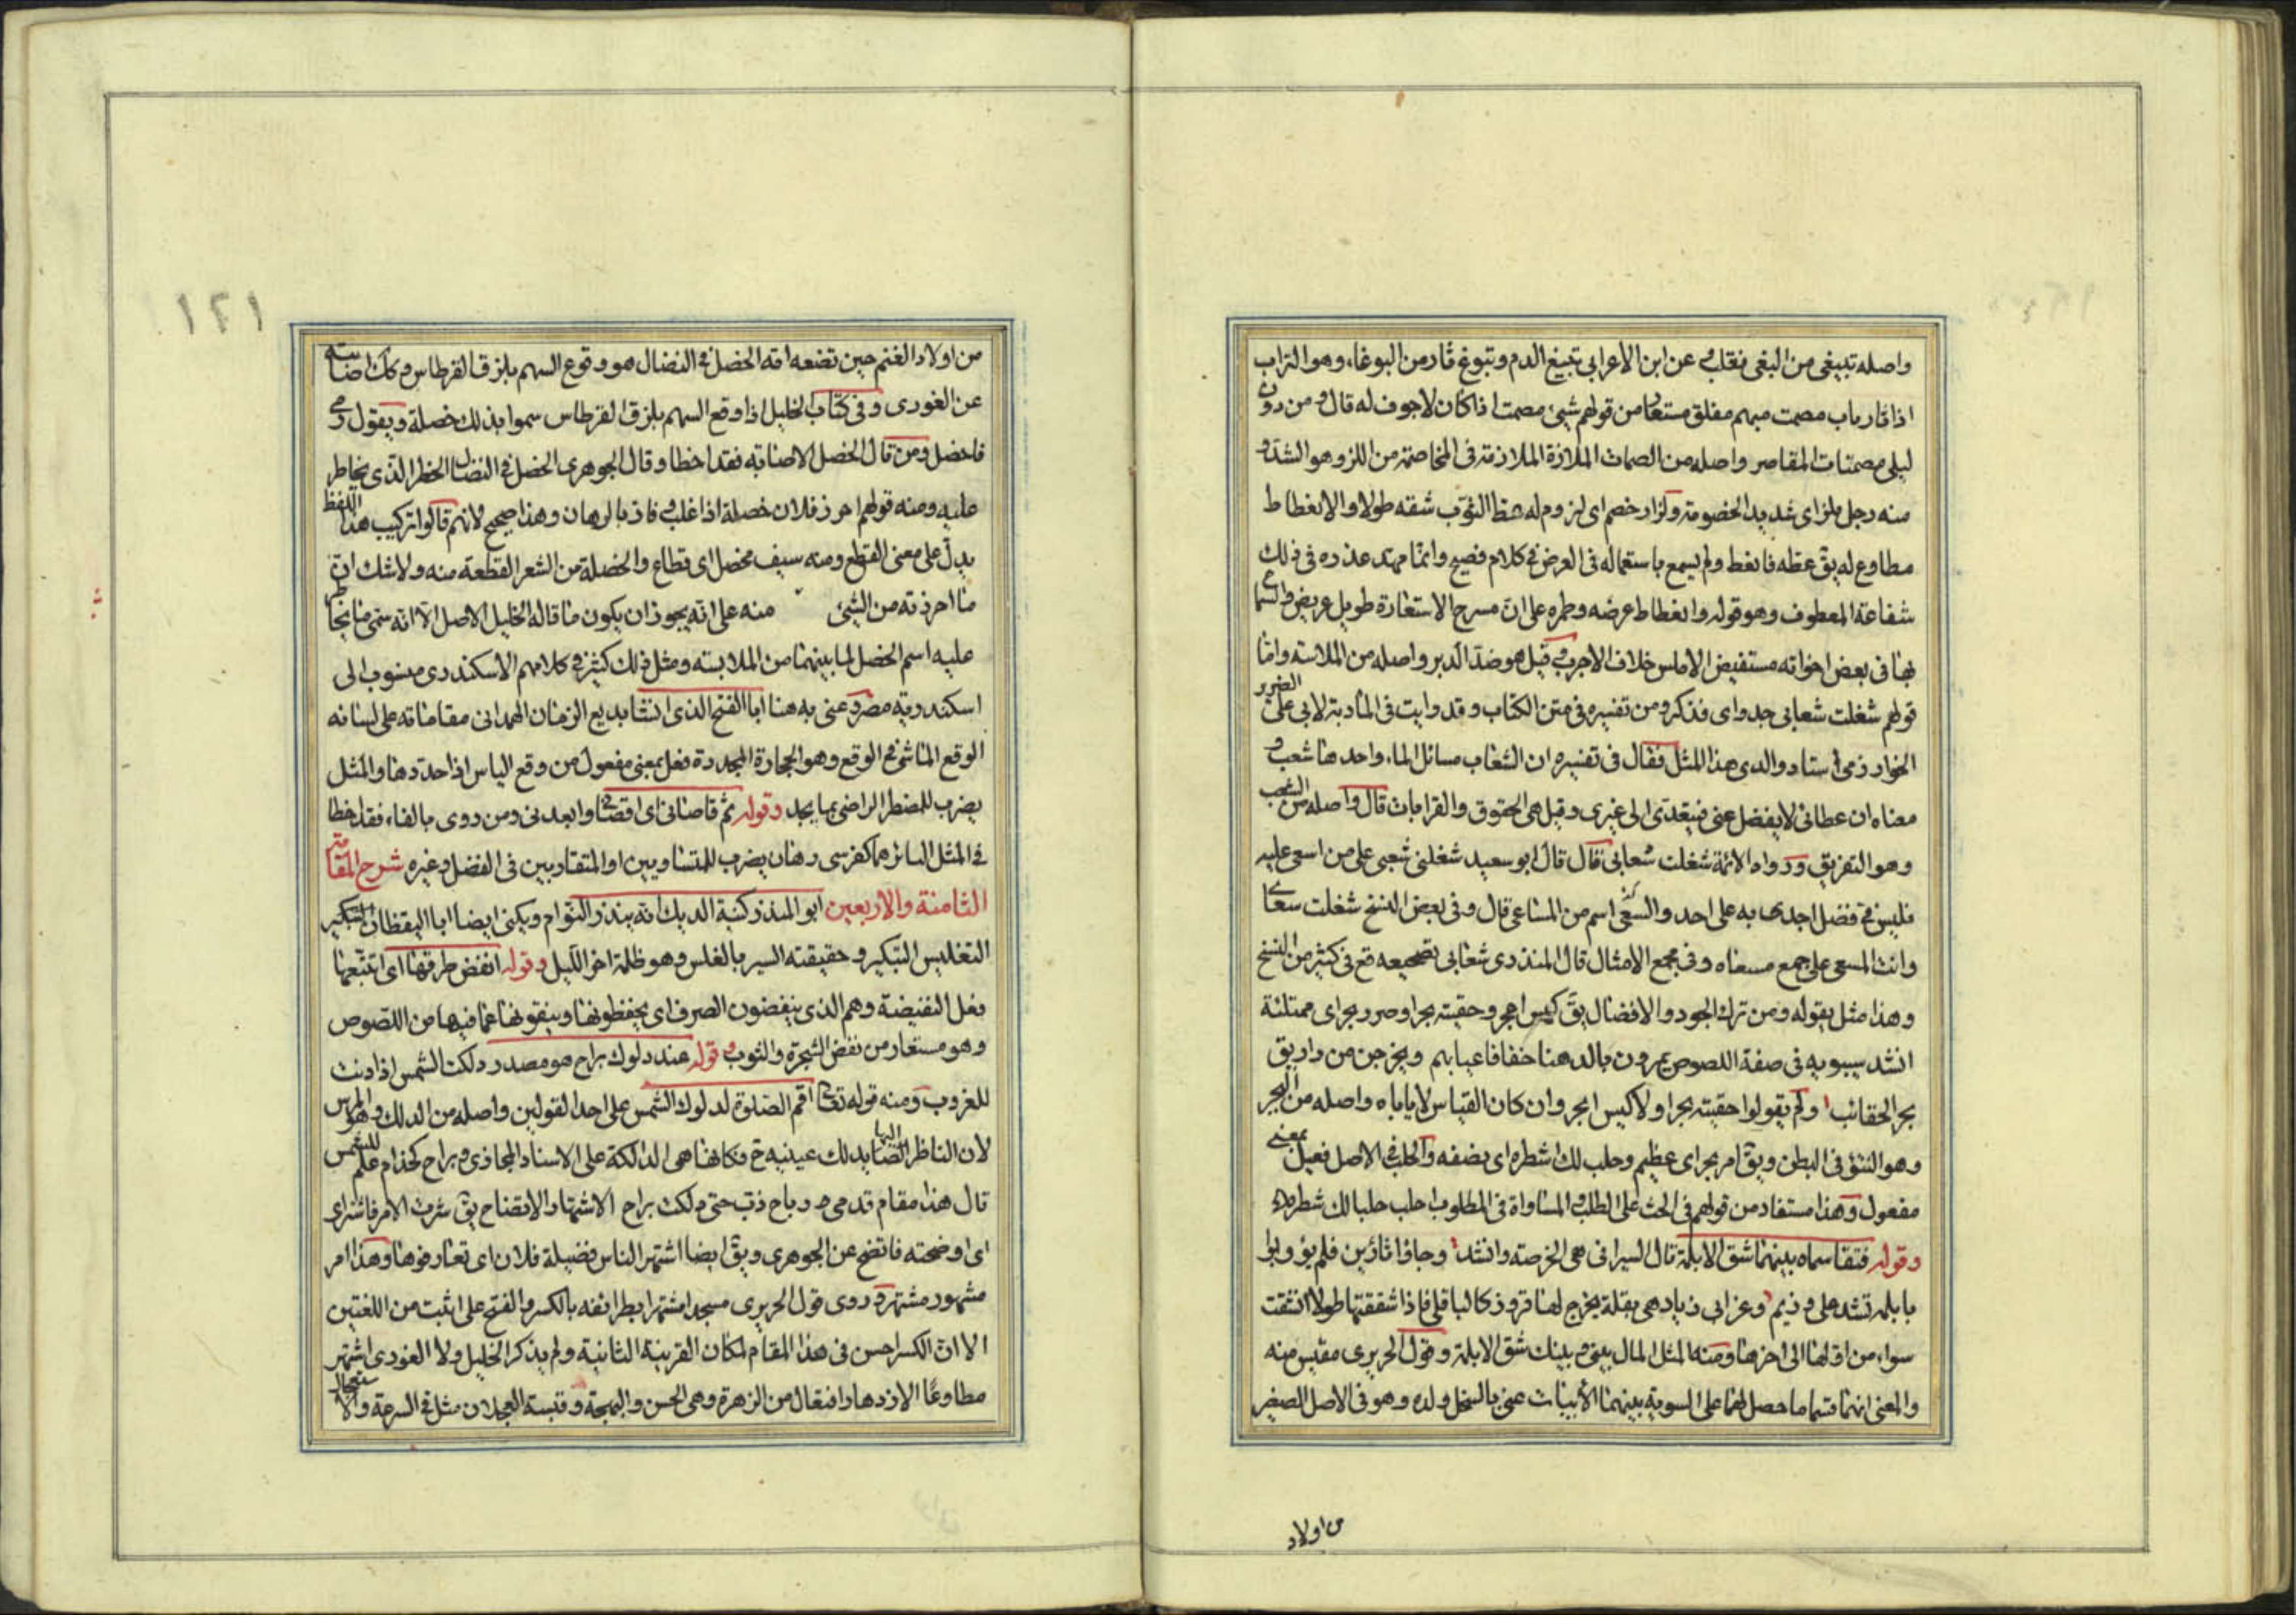 واصله تبيغى من البغى فقلب عن ابن الاعرابى تبيغ الدم وتبوغ ثار من البوغاء وهو التراب
اذا ثار باب مصمت مبهم مغلق مستعار من قولهم شىء مصمت اذا كان لا جوف له قال ومن دون
ليلى مصمتات المقاصر واصله من الصمات الملازة الملازمة فى المخاصمة من اللز وهو الشد و
منه رجل ملز اى شديد الخصومة ولزاز خصم اى لزوم له عط الثوب شقه طولا والانغطاط
مطاوع له يق عطه فانغط ولم يسمع باستعماله فى العرض فى كلام فصيح وانما مهد عذره فى ذلك
شفاعة المعطوف وهو قوله وانغطاط عرضه وطمره على ان مسرح الاستعارة طويل عريض
بها فى بعض اخواته مستفيض الاملس خلاف الاجرب وقيل هو ضد الدبر واصله من الملاسة واما
قولهم شغلت شعابى جدواى فذكر ومن تفسيره فى متن الكتاب وقد رايت فى المادبة لابى على الضرير
الخوارزمى استاد والدى هذا المثل فقال فى تفسيره ان الشعاب مسائل الماء واحدها شعب و
معناه ان عطائى لا يفضل عنى فيتعدى الى غيرى وقيل هى الحقوق والقرابات قال واصله من الشعب
وهو التفريق ورواه الائمة شغلت شعابى قال قال ابو سعيد شغلنى شعبى على من اسعى عليه
فليس فى فضل اجدى به على احد والسعى اسم من المساعى قال وفى بعض النسخ شغلت سعا
وانت المسعى على جمع مسعاه وفى مجمع الامثال قال المنذرى شعابى تصحيف وقع فى كثير من النسخ
وهذا مثل يقوله ومن ترك الجود والافضال يق كيس اعجر وحقيبة بجرا وصرر بجر اى ممتلئة
انشد سيبويه فى صفة اللصوص يمرون بالدهنا خفافا عيابهم ويخرجن من دارين
بجر الحقائب ولم يقولوا حقيبة بجرا ولا كيس ابجر وان كان القياس لا ياباه واصله من البجر
وهو النتو فى البطن ويق امر بجر اى عظيم وحلب لك شطره اى نصفه والحلب فى الاصل فعيل بمعنى
مفعول وهذا مستفاد من قولهم فى الحث على الطلب والمساواة فى المطلوب احلب حلبا لك شطره
وقوله فتقاسماه بينهما شق الابلمة قال السيرافى هى الخوصة وانشد وجاؤا ثائرين فلم يؤوبوا
بابلمة تشد على وذيم وعن ابى زياد هى بقلة يخرج لها قرون كالباقلى فاذا شققتها طولا انشقت
سواء من اولها الى اخرها ومنه المثل المال بينى وبينك شق الابلمة وقول الحريرى مقتبس منه
والمعنى انهما قسما ما حصل لهما على السوية بينهما الابيات عنى بالسخل ولده وهو فى الاصل الصغير
من اولاد
١٢١
من اولاد الغنم حين تضعه امه الخصل فى النضال هو وقوع السهم بلزق القرطاس وكان اصابته
عن الغورى وفى كتاب الخليل اذا وقع السهم بلزق القرطاس سموا بذلك خصلة ويقول رمى
فاخصل ومن قال الخصل الاصابة فقد اخطا وقال الجوهرى الخصل فى النضال الخطر الذى يخاطر
عليه ومنه قولهم احرز فلان خصلة اذا غلب وفاز بالرهان وهذا صحيح لانهم قالوا تركيب هذا اللفظ
يدل على معنى القطع ومنه سيف مخصل اى قطاع والخصلة من الشعر القطعة منه ولا شك ان
ما احرزته من الشىء منه على انه يجوز ان يكون ما قاله الخليل الاصل الا انه سمى ما يخاطر
عليه اسم الخصل لما بينهما من الملابسة ومثل ذلك كثير فى كلامهم الاسكندرى منسوب الى
اسكندرية مصر وعنى به هنا ابا الفتح الذى انشا بديع الزمان الهمدانى مقاماته على لسانه
الوقع الماشى فى الوقع وهو الحجارة المحددة فعل بمعنى مفعول من وقع الياس اذا حددها والمثل
يضرب للمضطر الراضى بما يجد وقوله ثم قاصانى اى اقصانى وابعدنى ومن روى بالفاء فقد اخطا
فى المثل السائر هما كفرسى رهان يضرب للمتساويين او المتقاربين فى الفضل وغيره شرح المقامة
الثامنة والاربعين ابو المنذر كنية الديك انه ينذر النوام ويكنى ايضا ابا اليقظان التبكير
التغليس التبكير وحقيقته السير بالغلس وهو ظلمة اخر الليل وقوله انفض طرقها اى اتتبعها
فعل النفيضة وهم الذى ينفضون الصرف اى يحفظونها وينقونها عما فيها من اللصوص
وهو مستعار من نفض الشجرة والثوب وقوله عند دلوك براح هو مصدر دلكت الشمس اذا دنت
للغروب ومنه قوله تعالى اقم الصلوة لدلوك الشمس على احد القولين واصله من الدلك وهو المرس
لان الناظر اليها يدلك عينيه ح فكانها هى الدالكة على الاسناد المجازى وبراح كحذام علم للشمس
قال هذا مقام قدمى رباح ذبب حتى دلكت براح الاشتهار والاتضاح يق شهرت الامر فاشتهر اى
اى اوضحته فاتضح عن الجوهرى ويق ايضا اشتهر الناس فضيلة فلان اى تعارفوها وهذا امر
مشهور مشتهر وروى قول الحريرى مسجدا مشتهرا بطرائفه بالكسر والفتح على اثبت من اللغتين
الا ان الكسر احسن فى هذا المقام لمكان القرينة الثانية ولم يذكر الخليل ولا الغورى اشتهر
مطاوعا الازدهار افتعال من الزهرة وهى الحسن والبهجة وقبسة العجلان مثل فى السرعة والاستعجال